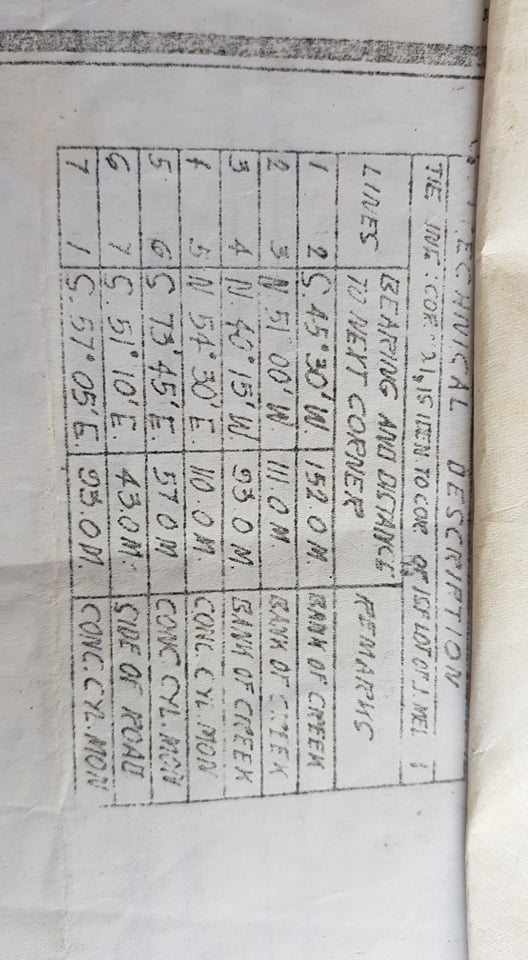 TECHNICAL DESCRIPTION
TIE LINE: COR. IS IDEN TO COR. LOT OF
LINES BEARING AND DISTANCE TO NEXT CORNER REMARKS
1 2 S. 45° 30' W. 152.0 M. BANK OF CREEK
2 3 N. 51° 00' W. 111.0 M. BANK OF CREEK
3 4 N. 40° 15' W. 93.0 M. BANK OF CREEK
4 5 N. 54° 30' E. 110.0 M. CONC. CYL. MON
5 6 S. 73° 45' E. 57.0 M CONC. CYL. MON
6 7 S. 51° 10' E. 43.0 M. SIDE OF ROAD
7 1 S. 57° 05' E. 93.0 M. CONC. CYL. MON